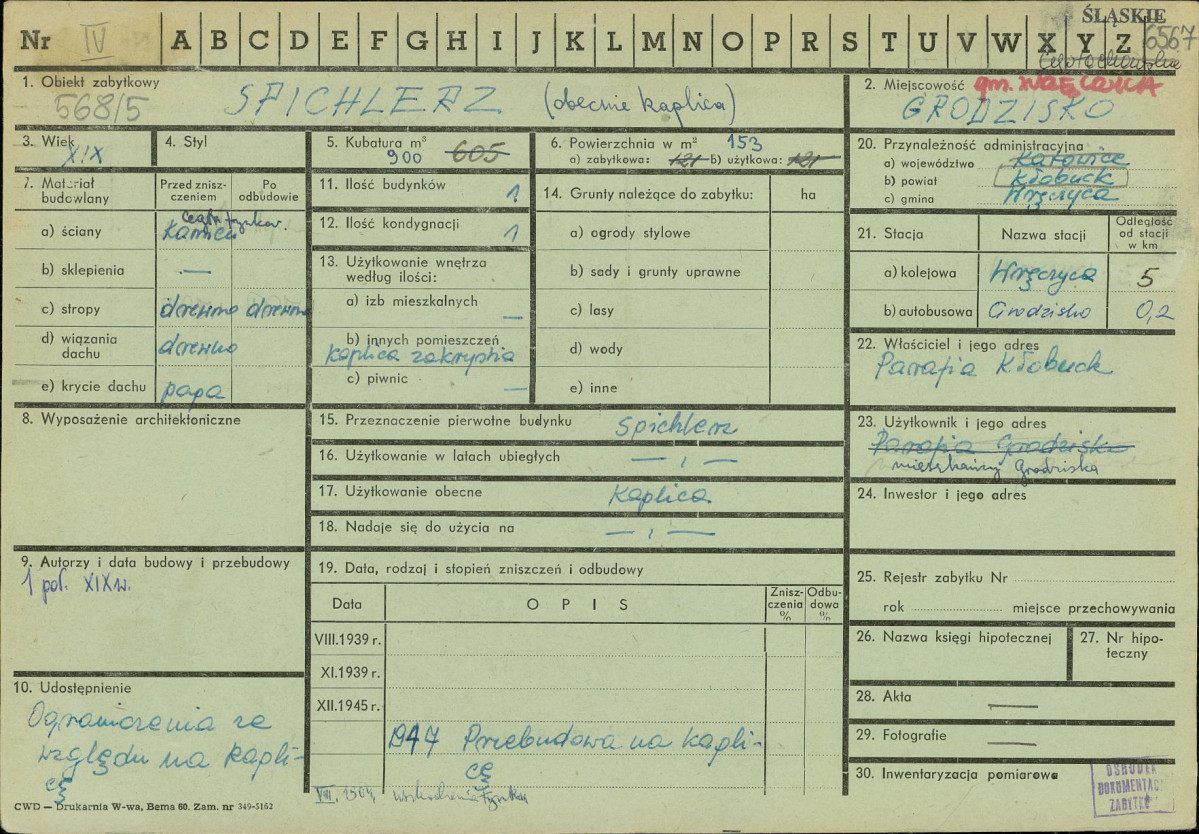 ŚLĄSKIE
Nr IV A B C D E F G H I J K L M N O P R S T U V W X Y Z 6567
Częstochowskie
1. Obiekt zabytkowy
568/5
SPICHLERZ (obecnie kaplica)
2. Miejscowość gm. WRĘCZYCA
GRODZISKO
3. Wiek
XIX
4. Styl
5. Kubatura m³
900 605
6. Powierzchnia w m² 153
a) zabytkowa: 121 b) użytkowa: 121
20. Przynależność administracyjna
a) województwo Katowice
b) powiat Kłobuck
c) gmina Wręczyca
7. Materiał budowlany
Przed zniszczeniem
Po odbudowie
a) ściany
cegła tynkow.
kamień
b) sklepienia —
c) stropy drewno drewno
d) wiązania dachu drewno
e) krycie dachu papa
11. Ilość budynków 1
12. Ilość kondygnacji 1
13. Użytkowanie wnętrza
według ilości:
a) izb mieszkalnych —
b) innych pomieszczeń
kaplica zakrystia
c) piwnic —
14. Grunty należące do zabytku: ha
a) ogrody stylowe
b) sady i grunty uprawne
c) lasy
d) wody
e) inne
21. Stacja
Nazwa stacji
Odległość
od stacji
w km
a) kolejowa Wręczyca 5
b) autobusowa Grodzisko 0,2
22. Właściciel i jego adres
Parafia Kłobuck
8. Wyposażenie architektoniczne
15. Przeznaczenie pierwotne budynku spichlerz
16. Użytkowanie w latach ubiegłych — , —
17. Użytkowanie obecne kaplica
18. Nadaje się do użycia na — , —
23. Użytkownik i jego adres
Parafia Grodzisko
mieszkańcy Grodziska
24. Inwestor i jego adres
9. Autorzy i data budowy i przebudowy
1 poł. XIX w.
19. Data, rodzaj i stopień zniszczeń i odbudowy
Data
OPIS
Zniszczenia %
Odbudowa %
VIII.1939 r.
XI.1939 r.
XII.1945 r.
1947 Przebudowa na kapli-
cę
25. Rejestr zabytku Nr
rok miejsce przechowywania
26. Nazwa księgi hipotecznej
27. Nr hipo-
teczny
10. Udostępnienie
Ograniczenia ze
względu na kapli-
cę
28. Akta —
29. Fotografie —
30. Inwentaryzacja pomiarowa
OŚRODEK
DOKUMENTACJI
ZABYTKÓW
CWD — Drukarnia W-wa, Bema 60. Zam. nr 349-5162
VIII. 1964